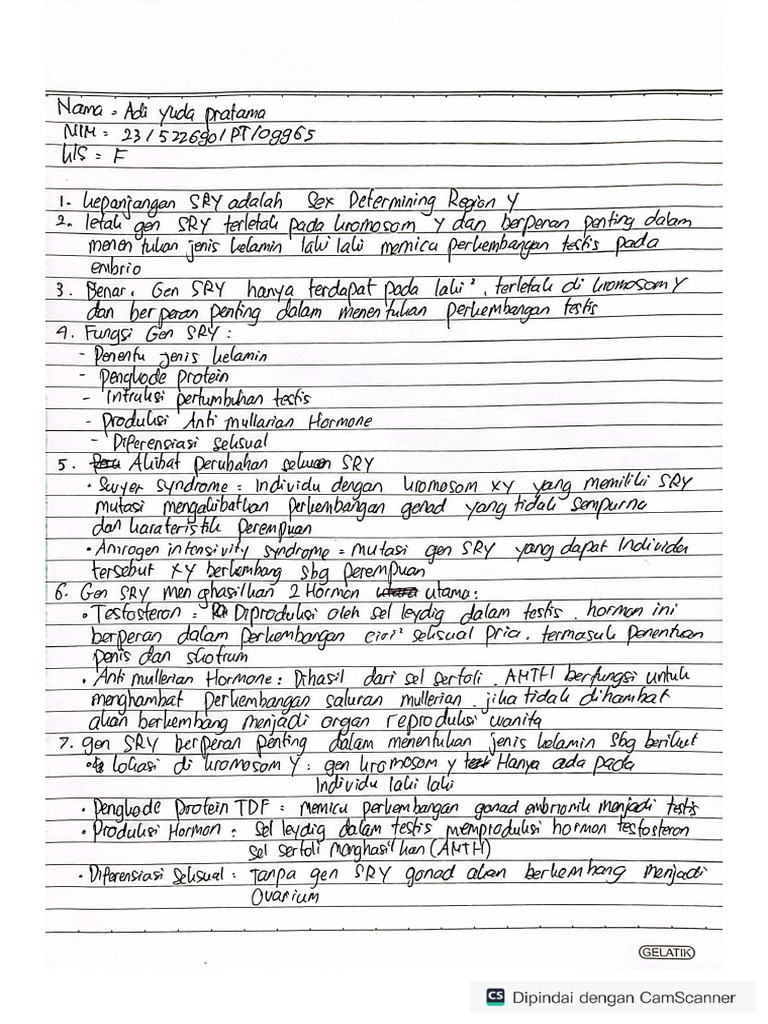 Nama = Adi Yuda Pratama
NIM = 23/522690/PT/09965
KLS = F
1. Kepanjangan SRY adalah Sex Determining Region Y
2. letak gen SRY terletak pada kromosom Y dan berperan penting dalam
menentukan jenis kelamin laki laki memicu perkembangan testis pada
embrio
3. Benar, Gen SRY hanya terdapat pada laki², terletak di kromosom Y
dan berperan penting dalam menentukan perkembangan testis
4. Fungsi Gen SRY :
- Penentu jenis kelamin
- Pengkode protein
- Intruksi pertumbuhan testis
- Produksi Anti mullarian Hormone
- Diferensiasi seksual
5. Akibat perubahan sekuen SRY
• Swyer syndrome = Individu dengan kromosom XY yang memiliki SRY
mutasi mengakibatkan perkembangan gonad yang tidak sempurna
dan karateristik perempuan
• Anrogen intensivity syndrome = mutasi gen SRY yang dapat Individu
tersebut XY berkembang sbg perempuan
6. Gen SRY menghasilkan 2 Hormon utama :
• Testosteron = Diproduksi oleh sel leydig dalam testis. hormon ini
berperan dalam perkembangan ciri² seksual pria, termasuk penentuan
penis dan skotrum
• Anti mullerian Hormone : Dihasil dari sel sertoli. AMTH berfungsi untuk
menghambat perkembangan saluran mullerian. jika tidak dihambat
akan berkembang menjadi organ reproduksi wanita
7. gen SRY berperan penting dalam menentukan jenis kelamin sbg berikut
• lokasi di kromosom Y : gen kromosom Y Hanya ada pada
Individu laki laki
• Pengkode Protein TDF = memicu perkembangan gonad embrionik menjadi testis
• Produksi Hormon = sel leydig dalam testis memproduksi hormon testosteron
sel sertoli menghasilkan (AMTH)
• Diferensiasi Seksual : Tanpa gen SRY gonad akan berkembang menjadi
Ovarium
GELATIK
CS Dipindai dengan CamScanner